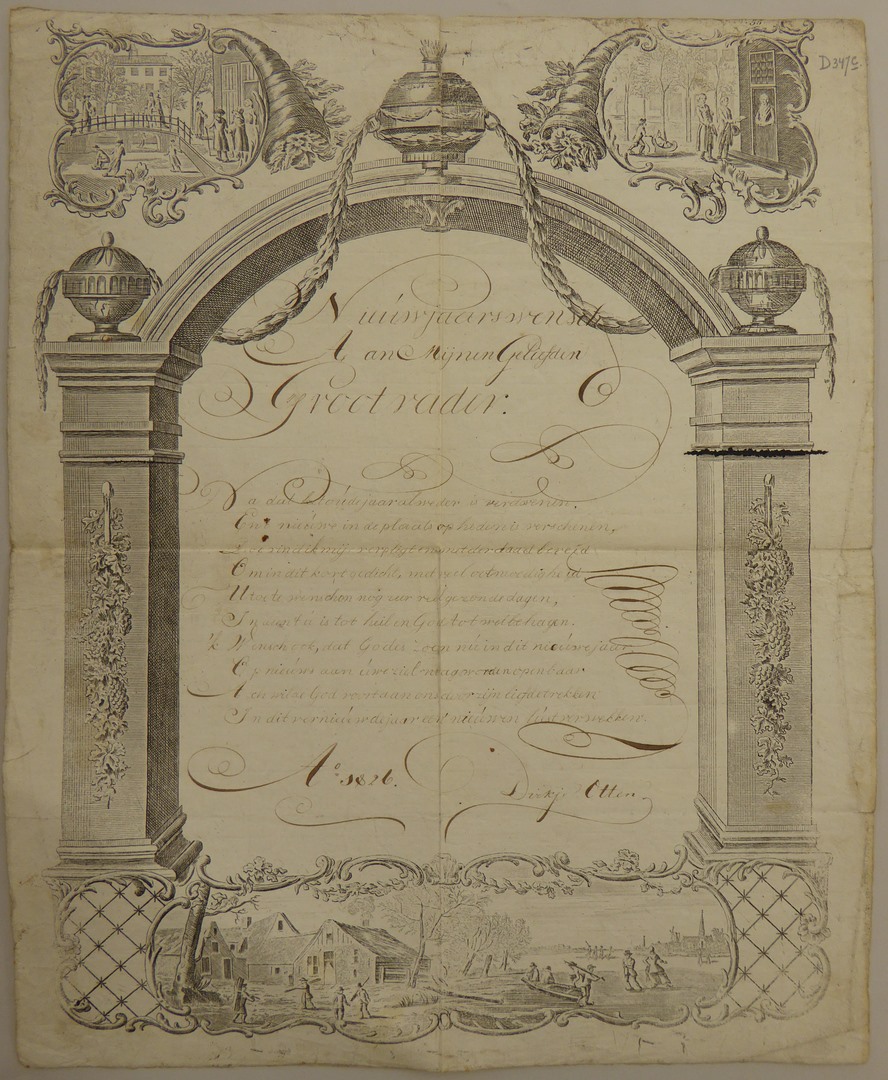 D347c
Nieúwjaarswensch
Aan Mijnen Geliefden
Grootvader.
Na dat het oúde jaar al weder is verdwenen.
En 't nieúwe in de plaats op heden is verschenen,
Zoo vind ik mij verpligt en inderdaad bereid
Om in dit kort gedicht, met veel ootmoedigheid
U toe te wenschen nog veel gezonde dagen,
In aan ú is tot heil en God tot welbehagen.
'k Wensch ook, dat Gods zoen nú in dit nieúwe jaar
Op nieúws aan úwe ziel mag worden openbaar
En wil ze God voortaan ons door zijn ligde trekken
In dit vernieúwde jaar een nieúwen lúst verwekken.
Aº. 1826.
Dirkje Otten.